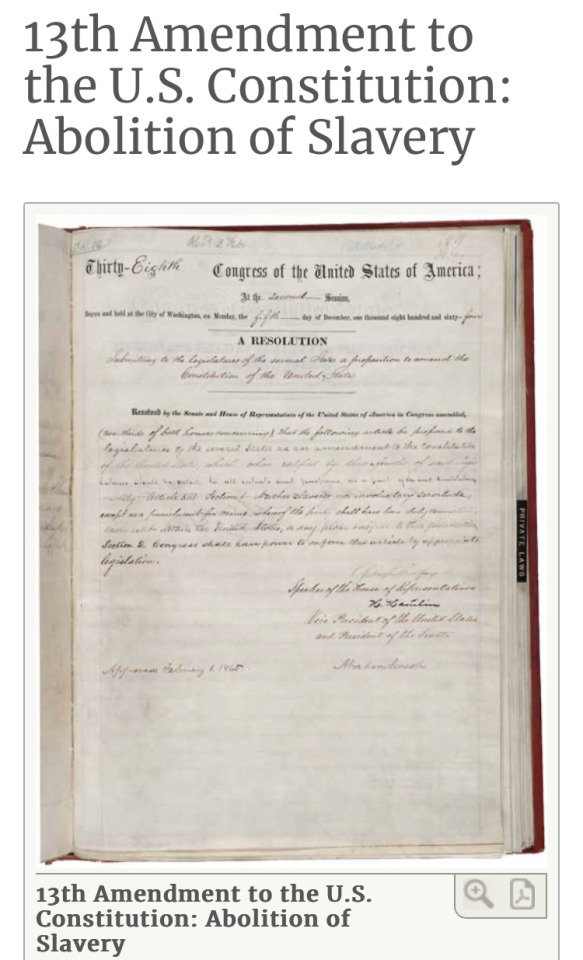 13th Amendment to
the U.S. Constitution:
Abolition of Slavery
Thirty-Eighth Congress of the United States of America;
At the second Session,
Begun and held at the City of Washington, on Monday, the fifth day of December, one thousand eight hundred and sixty-four
A RESOLUTION
Submitting to the legislatures of the several States a proposition to amend the
Constitution of the United States
Resolved by the Senate and House of Representatives of the United States of America in Congress assembled,
(two-thirds of both houses concurring) That the following article be proposed to the
legislatures of the several States as an amendment to the Constitution
of the United States, which when ratified by three-fourths of said
Article XIII Section 1 Neither Slavery nor involuntary servitude,
except as a punishment for crime whereof the party shall have been duly convicted
shall exist within the United States, or any place subject to their jurisdiction
Section 2 Congress shall have power to enforce this article by appropriate
legislation.
Speaker of the House of Representatives
H. Hamlin
Vice President of the United States
and President of the Senate
Approved February 1, 1865 Abraham Lincoln
PRIVATE LAWS
13th Amendment to the U.S.
Constitution: Abolition of
Slavery